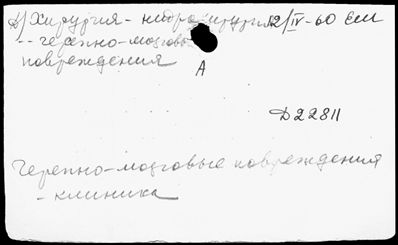 д) Хирургия - нейрохирургия 12/IV-60 Ели
-- черепно-мозговые
повреждения
А
D22811
Черепно-мозговые повреждения
- клиника